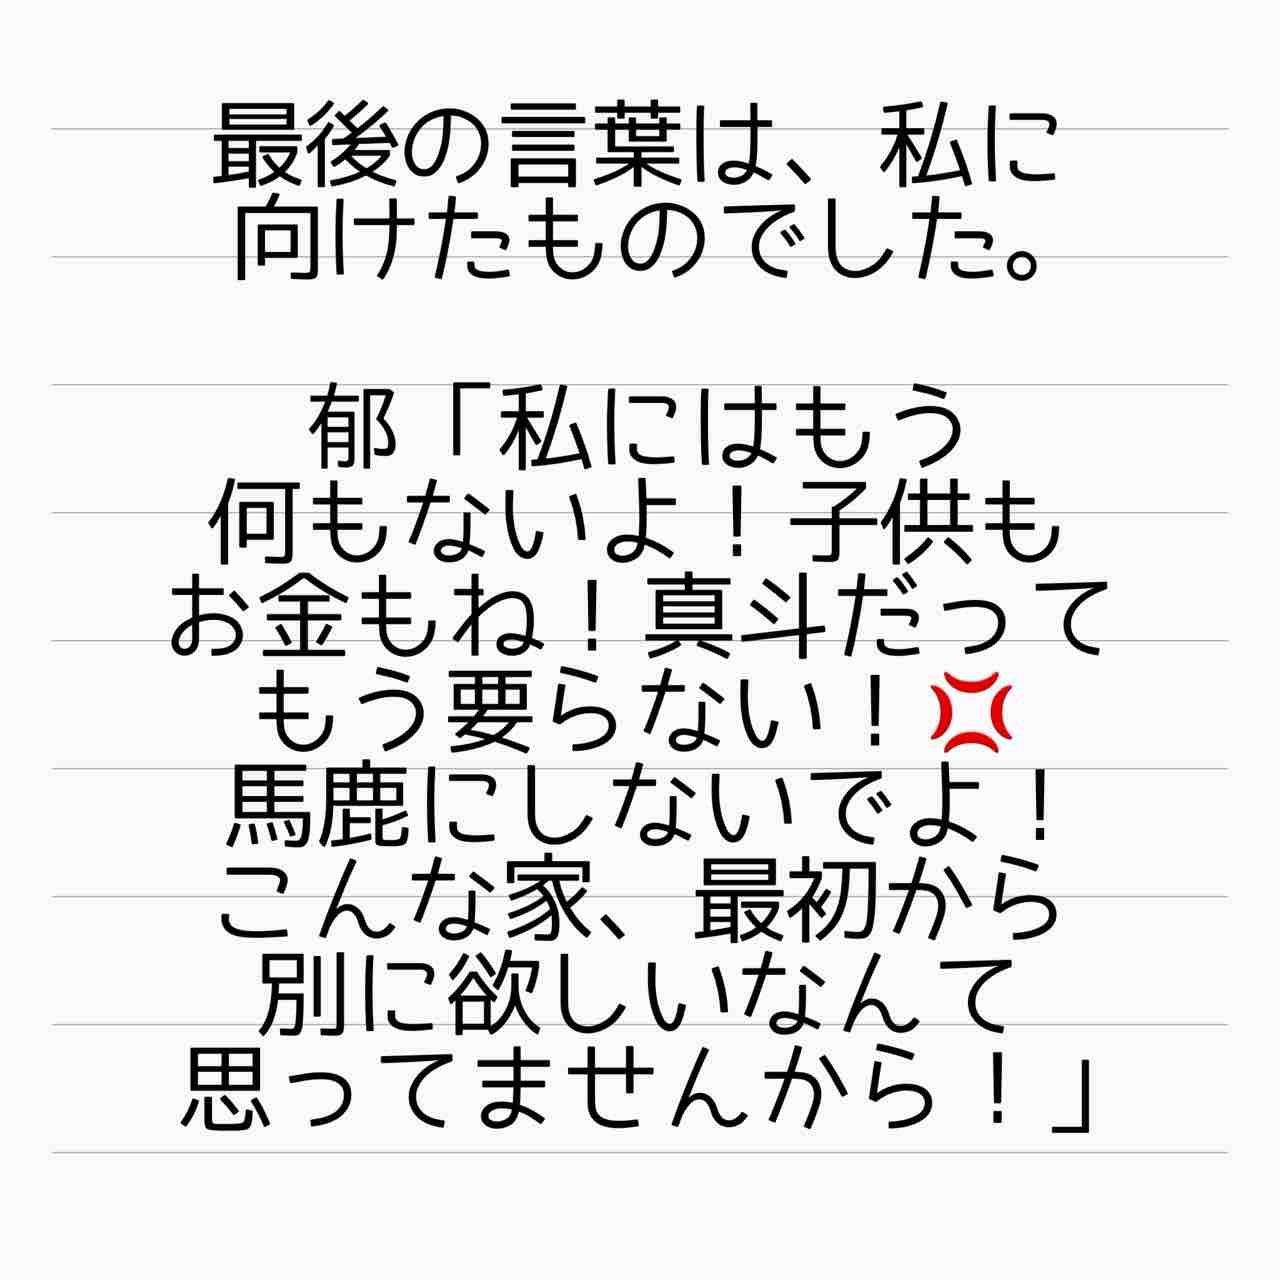 最後の言葉は、私に
向けたものでした。
郁「私にはもう
何もないよ！子供も
お金もね！真斗だって
もう要らない！💢
馬鹿にしないでよ！
こんな家、最初から
別に欲しいなんて
思ってませんから！」